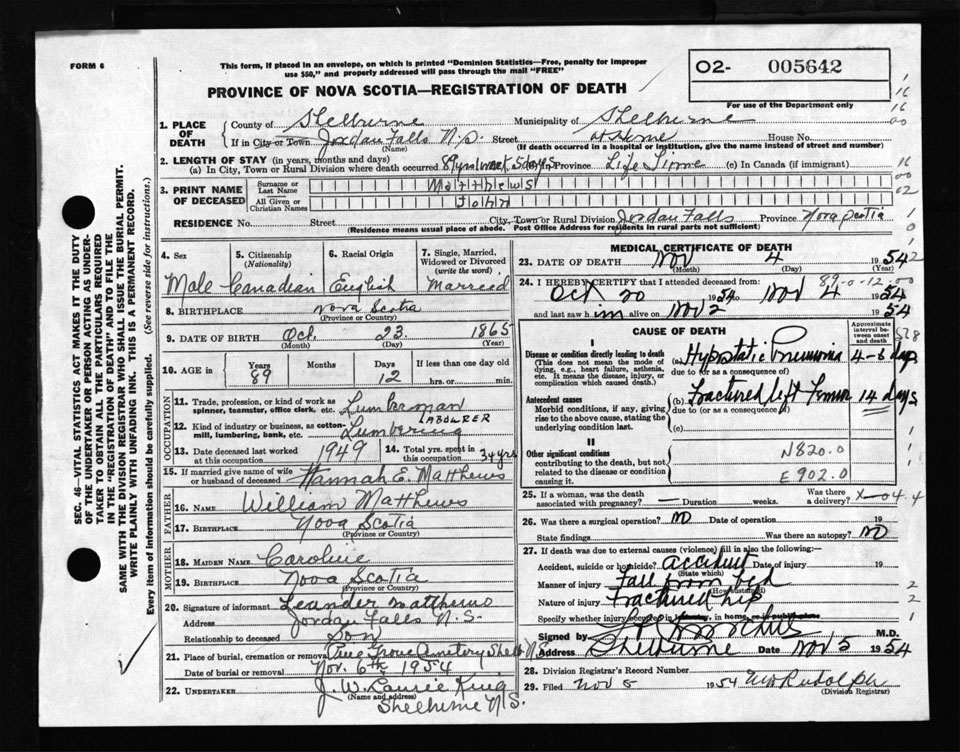 FORM 6
This form, if placed in an envelope, on which is printed "Dominion Statistics—Free, penalty for improper
use $50," and properly addressed will pass through the mail "FREE"
O2- 005642
For use of the Department only
PROVINCE OF NOVA SCOTIA—REGISTRATION OF DEATH
1. PLACE OF DEATH County of Shelburne Municipality of Shelburne
If in City or Town Jordan Falls N.S. Street at Home House No.
(Name) (If death occurred in a hospital or institution, give the name instead of street and number)
2. LENGTH OF STAY (in years, months and days)
(a) In City, Town or Rural Division where death occurred 89 (b) in Province Life Time (c) In Canada (if immigrant)
3. PRINT NAME OF DECEASED Surname or Last Name Matthews
All Given or Christian Names John
RESIDENCE No. Street City, Town or Rural Division Jordan Falls Province Nova Scotia
(Residence means usual place of abode. Post Office Address for residents in rural parts not sufficient)
4. Sex Male
5. Citizenship (Nationality) Canadian
6. Racial Origin English
7. Single, Married, Widowed or Divorced (write the word) Married
8. BIRTHPLACE Nova Scotia
(Province or Country)
9. DATE OF BIRTH Oct. 23 1865
(Month) (Day) (Year)
10. AGE in Years 89 Months Days 12 If less than one day old hrs. or min.
OCCUPATION
11. Trade, profession, or kind of work as spinner, teamster, office clerk, etc. Lumberman
LABOURER
12. Kind of industry or business, as cotton-mill, lumbering, bank, etc. Lumbering
13. Date deceased last worked at this occupation 1949
14. Total yrs. spent in this occupation 34 yrs
15. If married give name of wife or husband of deceased Hannah E. Matthews
FATHER
16. NAME William Matthews
17. BIRTHPLACE Nova Scotia
(Province or Country)
MOTHER
18. MAIDEN NAME Caroline
19. BIRTHPLACE Nova Scotia
(Province or Country)
20. Signature of informant Leander Matthews
Address Jordan Falls N.S.
Relationship to deceased Son
21. Place of burial, cremation or removal Pine Grove Cemetery Shel N.S.
Date of burial or removal Nov. 6th, 1954
22. UNDERTAKER J. W. Laurie King
(Name and address)
Shelburne N.S.
MEDICAL CERTIFICATE OF DEATH
23. DATE OF DEATH Nov 4 1954
(Month) (Day) (Year)
24. I HEREBY CERTIFY that I attended deceased from: 89-0-12
Oct 20 1954 Nov 4 1954
and last saw him alive on Nov 2 1954
CAUSE OF DEATH
Approximate interval between onset and death
I
Disease or condition directly leading to death
(This does not mean the mode of dying, e.g., heart failure, asthenia, etc. It means the disease, injury, or complication which caused death.)
(a) Hypostatic Pneumonia 4-6 days
due to (or as a consequence of)
Antecedent causes
Morbid conditions, if any, giving rise to the above cause, stating the underlying condition last.
(b) Fractured left Femur 14 days
due to (or as a consequence of)
(c)
II
Other significant conditions
contributing to the death, but not related to the disease or condition causing it.
N820.0
E902.0
25. If a woman, was the death associated with pregnancy? — Duration weeks. Was there a delivery?
26. Was there a surgical operation? No Date of operation 19
State findings Was there an autopsy? No
27. If death was due to external causes (violence) fill in also the following:—
Accident, suicide or homicide? accident Date of injury 19
(State which)
Manner of injury Fall from bed
(How sustained)
Nature of injury Fractured hip
Specify whether injury occurred in industry, in home, or in public place
Signed by M.D.
Address Shelburne N.S. Date Nov 5 1954
28. Division Registrar's Record Number
29. Filed Nov 5 1954 Rudolph
(Division Registrar)
SEC. 46—VITAL STATISTICS ACT MAKES IT THE DUTY
OF THE UNDERTAKER OR PERSON ACTING AS UNDER-
TAKER TO OBTAIN ALL THE PARTICULARS REQUIRED
IN THE "REGISTRATION OF DEATH" AND TO FILE THE
SAME WITH THE DIVISION REGISTRAR WHO SHALL ISSUE THE BURIAL PERMIT.
WRITE PLAINLY WITH UNFADING INK. THIS IS A PERMANENT RECORD.
Every item of information should be carefully supplied. (See reverse side for instructions.)